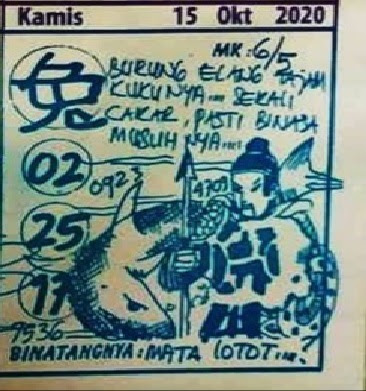 Kamis 15 Okt 2020
MK: 6/5
BURUNG ELANG TAJAM
KUKUNYA.... SEKALI
CAKAR, PASTI BINASA
MUSUHNYA....
兔
02
0923
4709
25
17
7536
BINATANGNYA: MATA LOTOT...?